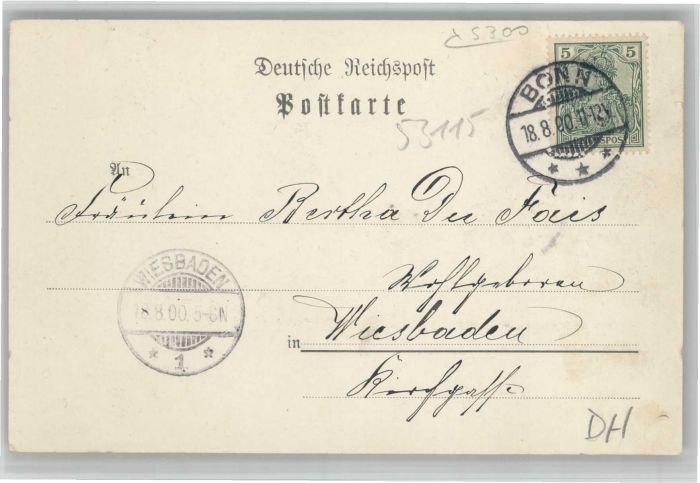 d 5300
Deutsche Reichspost
Postkarte
5 5
BONN
18.8.00.11-12V
53115
An
Fräulein Bertha Du Fais
Wohlgeboren
WIESBADEN
18.8.00.5-6N
1
in Wiesbaden
Kirchgasse
DH